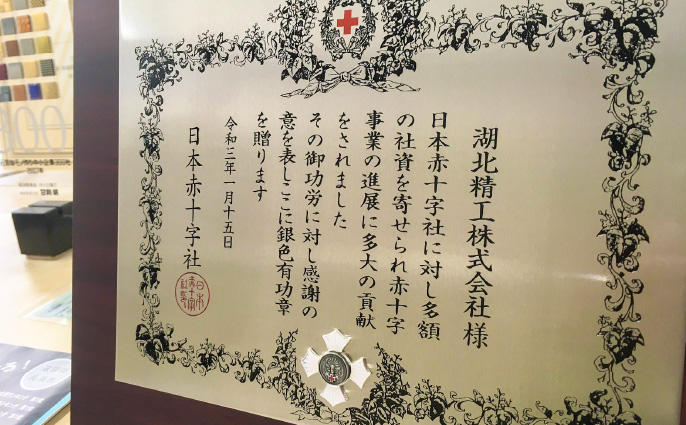 湖北精工株式会社様
日本赤十字社に対し多額
の社資を寄せられ赤十字
事業の進展に多大の貢献
をされました
その御功労に対し感謝の
意を表しここに銀色有功章
を贈ります
令和三年一月十五日
日本赤十字社